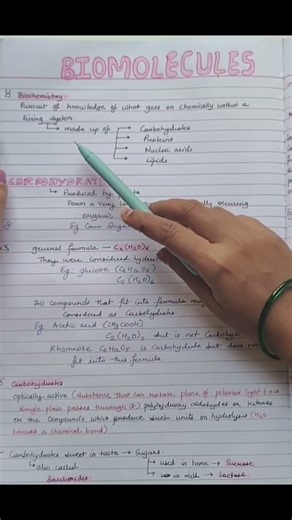 BIOMOLECULES
Biochemistry:
Pursuit of knowledge of what goes on chemically within a
living system
made up of → Carbohydrates
→ Proteins
→ Nucleic acids
→ Lipids
Produced by
Form a very
organic
Eg: Cane Sugar
general formula — Cx(H2O)y
They were considered
Eg: glucose (C6H12O6)
C6(H2O)6
All compounds that fit into formula may
considered as Carbohydrate
Eg. Acetic acid (CH3COOH)
C2(H2O)2 but is not Carbohy
Rhamnose C6H12O5 is Carbohydrate but does not
fit into this formula.
Carbohydrates
Optically active (substance that can rotate plane of polarised light
plane passes through it) polyhydroxy aldehydes or ketones
or the compounds which produce such units on hydrolysis (H2O
breaks a chemical bond).
Carbohydrates sweet in taste → Sugars.
also called used in home → Sucrose
Saccharides in milk → Lactose